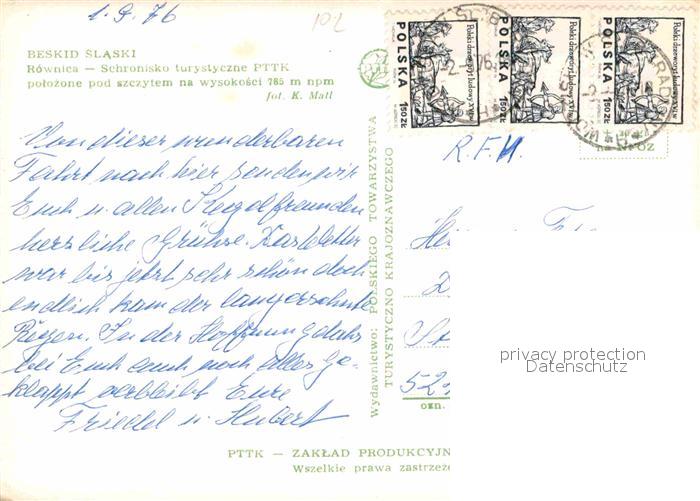 1.9.76
102
BESKID ŚLĄSKI
Równica — Schronisko turystyczne PTTK
położone pod szczytem na wysokości 785 m npm
fot. K. Mall
Polski drzeworyt ludowy XVI w.
POLSKA
1,50 ZŁ
Polski drzeworyt ludowy XVI w.
POLSKA
1,50 ZŁ
Polski drzeworyt ludowy XVI w.
POLSKA
1,50 ZŁ
Von dieser wunderbaren
Fahrt nach hier senden wir
Euch u. allen Kegelfreunden
herzliche Grühse. Das Wetter
war bis jetzt sehr schön doch
endlich kam der langersehnte
Regen. In der Hoffnung dahs
bei Euch auch noch alles ge-
klappt verbleibt Eure
Friedel u. Hubert
Wydawnictwo: POLSKIEGO TOWARZYSTWA
TURYSTYCZNO KRAJOZNAWCZEGO
R.F.N.
52
ozn.
PTTK — ZAKŁAD PRODUKCYJN
Wszelkie prawa zastrzeże
privacy protection
Datenschutz